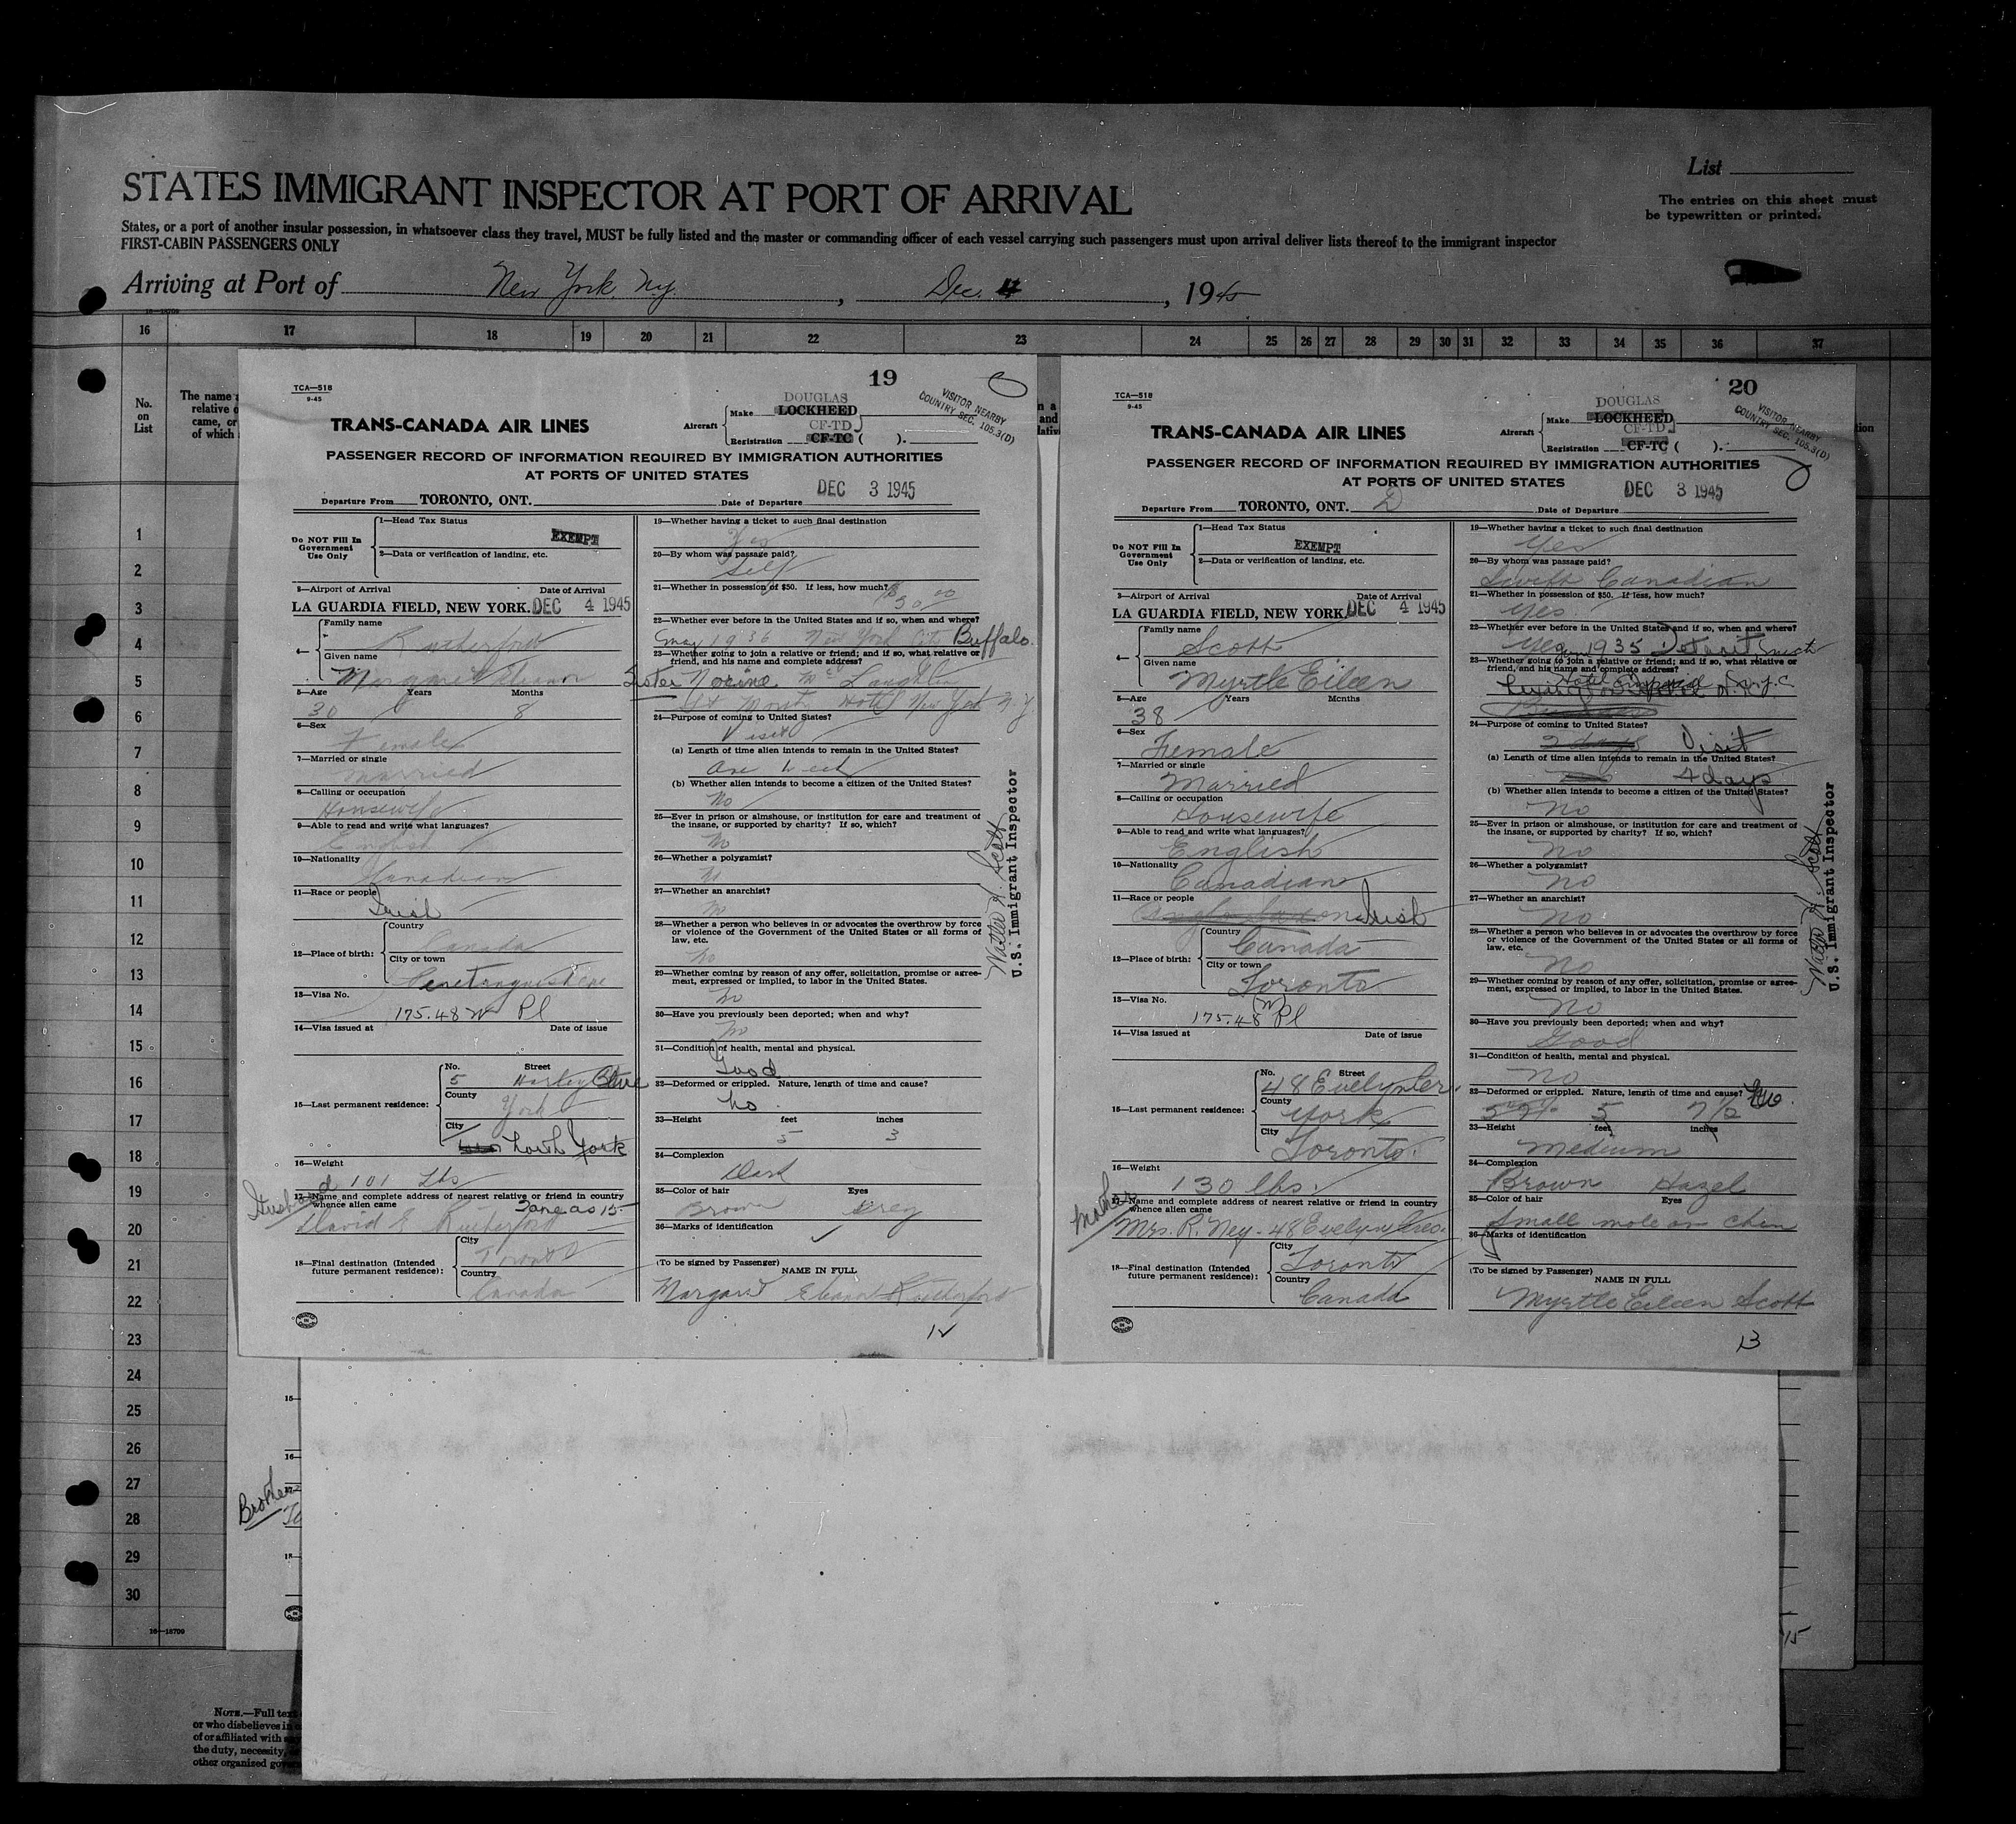 List
STATES IMMIGRANT INSPECTOR AT PORT OF ARRIVAL
The entries on this sheet must
be typewritten or printed.
States, or a port of another insular possession, in whatsoever class they travel, MUST be fully listed and the master or commanding officer of each vessel carrying such passengers must upon arrival deliver lists thereof to the immigrant inspector
FIRST-CABIN PASSENGERS ONLY
Arriving at Port of New York, N.Y. , Dec. 4 , 1945
16—18709
16 17 18 19 20 21 22 23 24 25 26 27 28 29 30 31 32 33 34 35 36 37
No.
on
List
The name
relative o
came, or
of which
1
2
3
4
5
6
7
8
9
10
11
12
13
14
15
16
17
18
19
20
21
22
23
24
25
26
27
28
29
30
16—18709
19
TCA—518
9-45
VISITOR NEARBY
COUNTRY SEC. 105.3(D)
TRANS-CANADA AIR LINES
Aircraft
DOUGLAS
Make LOCKHEED
CF-TD
Registration CF-TC ( ).
PASSENGER RECORD OF INFORMATION REQUIRED BY IMMIGRATION AUTHORITIES
AT PORTS OF UNITED STATES
Departure From TORONTO, ONT. Date of Departure DEC 3 1945
Do NOT Fill In
Government
Use Only
1—Head Tax Status
EXEMPT
2—Data or verification of landing, etc.
3—Airport of Arrival Date of Arrival
LA GUARDIA FIELD, NEW YORK. DEC 4 1945
4—
Family name
Rutherford
Given name
Margaret Eleanor
5—Age Years Months
30 8
6—Sex
Female
7—Married or single
Married
8—Calling or occupation
Housewife
9—Able to read and write what languages?
English
10—Nationality
Canadian
11—Race or people
Irish
12—Place of birth:
Country
Canada
City or town
Penetanguishene
13—Visa No.
175.48 W Pl
14—Visa issued at Date of issue
15—Last permanent residence:
No. Street
5
County
York
City
North York
16—Weight
101 Lbs
Husband
17—Name and complete address of nearest relative or friend in country
whence alien came Same as 15
David E Rutherford
18—Final destination (Intended
future permanent residence):
City
Toronto
Country
Canada
19—Whether having a ticket to such final destination
Yes
20—By whom was passage paid?
Self
21—Whether in possession of $50. If less, how much?
$30.00
22—Whether ever before in the United States and if so, when and where?
May 1936 New York City Buffalo.
23—Whether going to join a relative or friend; and if so, what relative or
friend, and his name and complete address?
Sister Norine McLaughlin
St Moritz Hotel New York N.Y.
24—Purpose of coming to United States?
Visit
(a) Length of time alien intends to remain in the United States?
One week
(b) Whether alien intends to become a citizen of the United States?
No
25—Ever in prison or almshouse, or institution for care and treatment of
the insane, or supported by charity? If so, which?
No
26—Whether a polygamist?
No
27—Whether an anarchist?
No
28—Whether a person who believes in or advocates the overthrow by force
or violence of the Government of the United States or all forms of
law, etc.
No
29—Whether coming by reason of any offer, solicitation, promise or agree-
ment, expressed or implied, to labor in the United States.
No
30—Have you previously been deported; when and why?
No
31—Condition of health, mental and physical.
Good
32—Deformed or crippled. Nature, length of time and cause?
No
33—Height feet inches
5 3
34—Complexion
Dark
35—Color of hair Eyes
Brown Grey
36—Marks of identification
(To be signed by Passenger)
NAME IN FULL
Margaret Eleanor Rutherford
12
Walter A. Scott
U.S. Immigrant Inspector
20
TCA—518
9-45
VISITOR NEARBY
COUNTRY SEC. 105.3(D)
TRANS-CANADA AIR LINES
Aircraft
DOUGLAS
Make LOCKHEED
CF-TD
Registration CF-TC ( ).
PASSENGER RECORD OF INFORMATION REQUIRED BY IMMIGRATION AUTHORITIES
AT PORTS OF UNITED STATES
Departure From TORONTO, ONT. D Date of Departure DEC 3 1945
Do NOT Fill In
Government
Use Only
1—Head Tax Status
EXEMPT
2—Data or verification of landing, etc.
3—Airport of Arrival Date of Arrival
LA GUARDIA FIELD, NEW YORK. DEC 4 1945
4—
Family name
Scott
Given name
Myrtle Eileen
5—Age Years Months
38
6—Sex
Female
7—Married or single
Married
8—Calling or occupation
Housewife
9—Able to read and write what languages?
English
10—Nationality
Canadian
11—Race or people
Anglo Saxon Irish
12—Place of birth:
Country
Canada
City or town
Toronto
13—Visa No.
175.48 (W) Pl
14—Visa issued at Date of issue
15—Last permanent residence:
No. Street
48 Evelyn Cres.
County
York
City
Toronto.
16—Weight
130 lbs.
Mother
17—Name and complete address of nearest relative or friend in country
whence alien came
Mrs. R. Ney - 48 Evelyn Cres.
18—Final destination (Intended
future permanent residence):
City
Toronto
Country
Canada
19—Whether having a ticket to such final destination
Yes
20—By whom was passage paid?
Swifts Canadian
21—Whether in possession of $50. If less, how much?
Yes
22—Whether ever before in the United States and if so, when and where?
Yes 1935 Detroit Mich
23—Whether going to join a relative or friend; and if so, what relative or
friend, and his name and complete address?
Lexington Hotel N.Y.C
24—Purpose of coming to United States?
2 days Visit
(a) Length of time alien intends to remain in the United States?
4 days
(b) Whether alien intends to become a citizen of the United States?
No
25—Ever in prison or almshouse, or institution for care and treatment of
the insane, or supported by charity? If so, which?
No
26—Whether a polygamist?
No
27—Whether an anarchist?
No
28—Whether a person who believes in or advocates the overthrow by force
or violence of the Government of the United States or all forms of
law, etc.
No
29—Whether coming by reason of any offer, solicitation, promise or agree-
ment, expressed or implied, to labor in the United States.
No
30—Have you previously been deported; when and why?
Good
31—Condition of health, mental and physical.
No
32—Deformed or crippled. Nature, length of time and cause?
5 7 1/2
33—Height feet inches
Medium
34—Complexion
Brown Hazel
35—Color of hair Eyes
Small mole on chin
36—Marks of identification
(To be signed by Passenger)
NAME IN FULL
Myrtle Eileen Scott
13
Walter A. Scott
U.S. Immigrant Inspector
15—
16—
Brother
18—
15
NOTE.—Full text
or who disbelieves in
of or affiliated with
the duty, necessity,
other organized gov